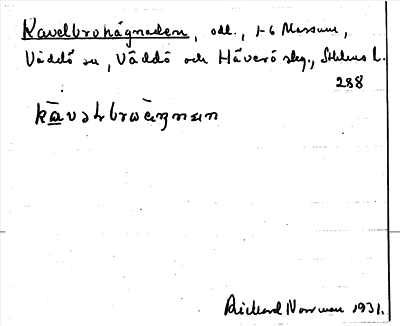 Kavelbrohägnaden, odl., t-6 Massum,
Väddö sn, Väddö och Häverö skg., Sthlms l.
288
Richard Norrman 1931.